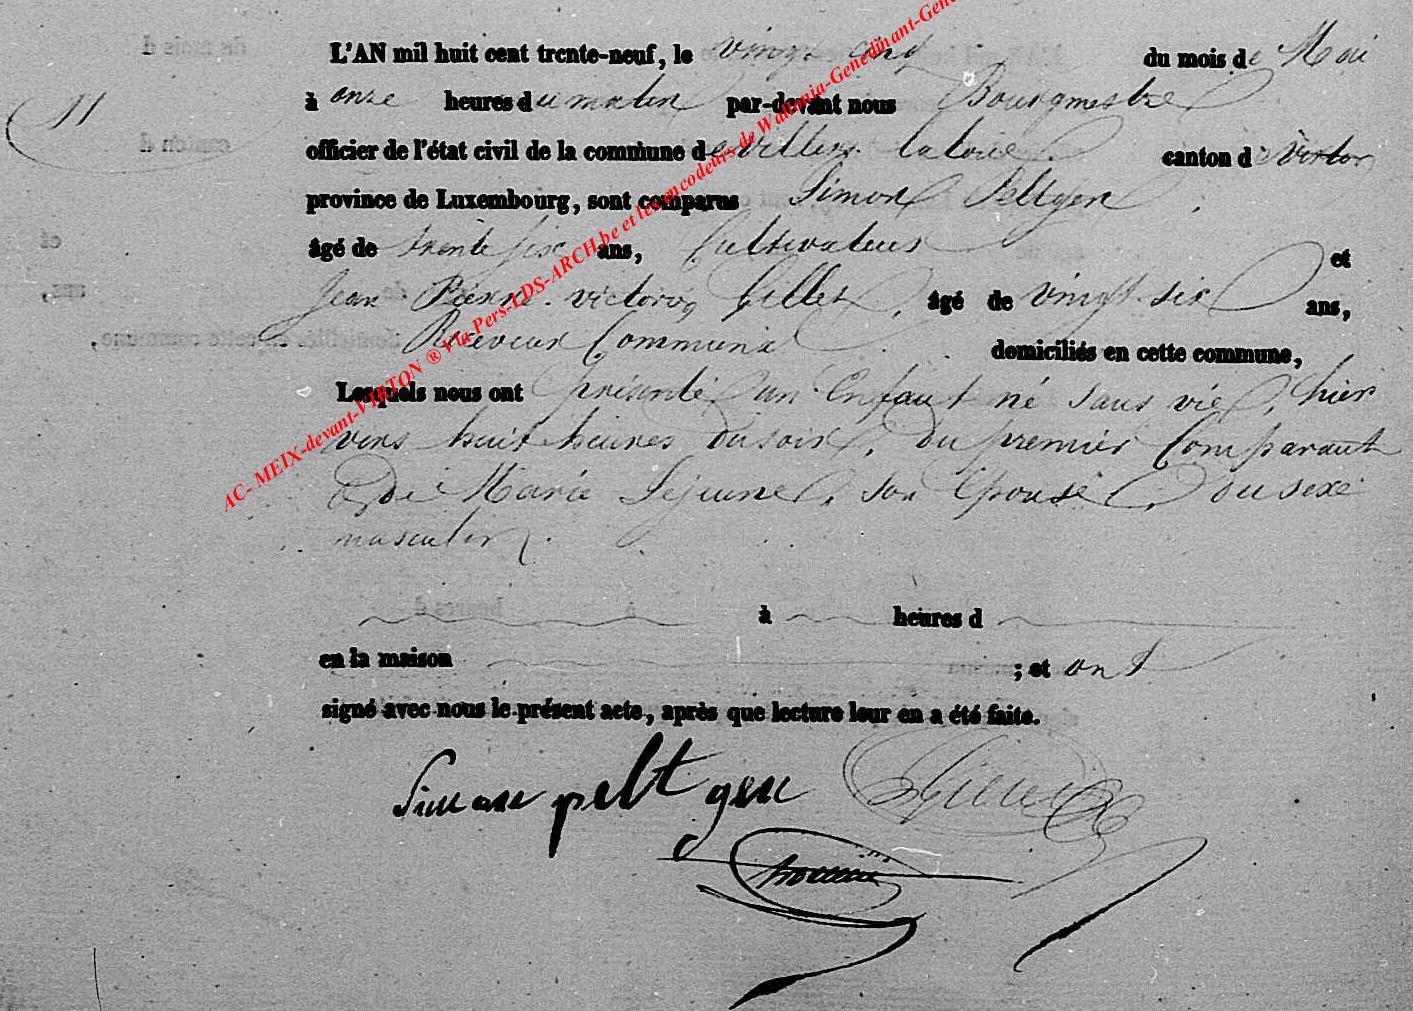 L'AN mil huit cent trente-neuf, le vingt cinq du mois de Mai
11
à onze heures du matin par-devant nous Bourgmestre
officier de l'état civil de la commune de Villers latour canton de virton
province de Luxembourg, sont comparus Simon Peltgen,
âgé de trente six ans, Cultivateur et
Jean Pierre victor Gillet, âgé de vingt-six ans,
Receveur Communal domiciliés en cette commune,
Lesquels nous ont présenté un Enfant né sans vie, hier
vers huit heures du soir, du premier Comparant
& de Marie Lejeune, son Epouse, du sexe
masculin.
à heures d
en la maison ; et ont
signé avec nous le présent acte, après que lecture leur en a été faite.
Simon peltgen
AC- MEIX-devant-VIRTON ® Via Pers-LDS-ARCH.be et les encodeurs de Wallonia-Genedinant-Gene